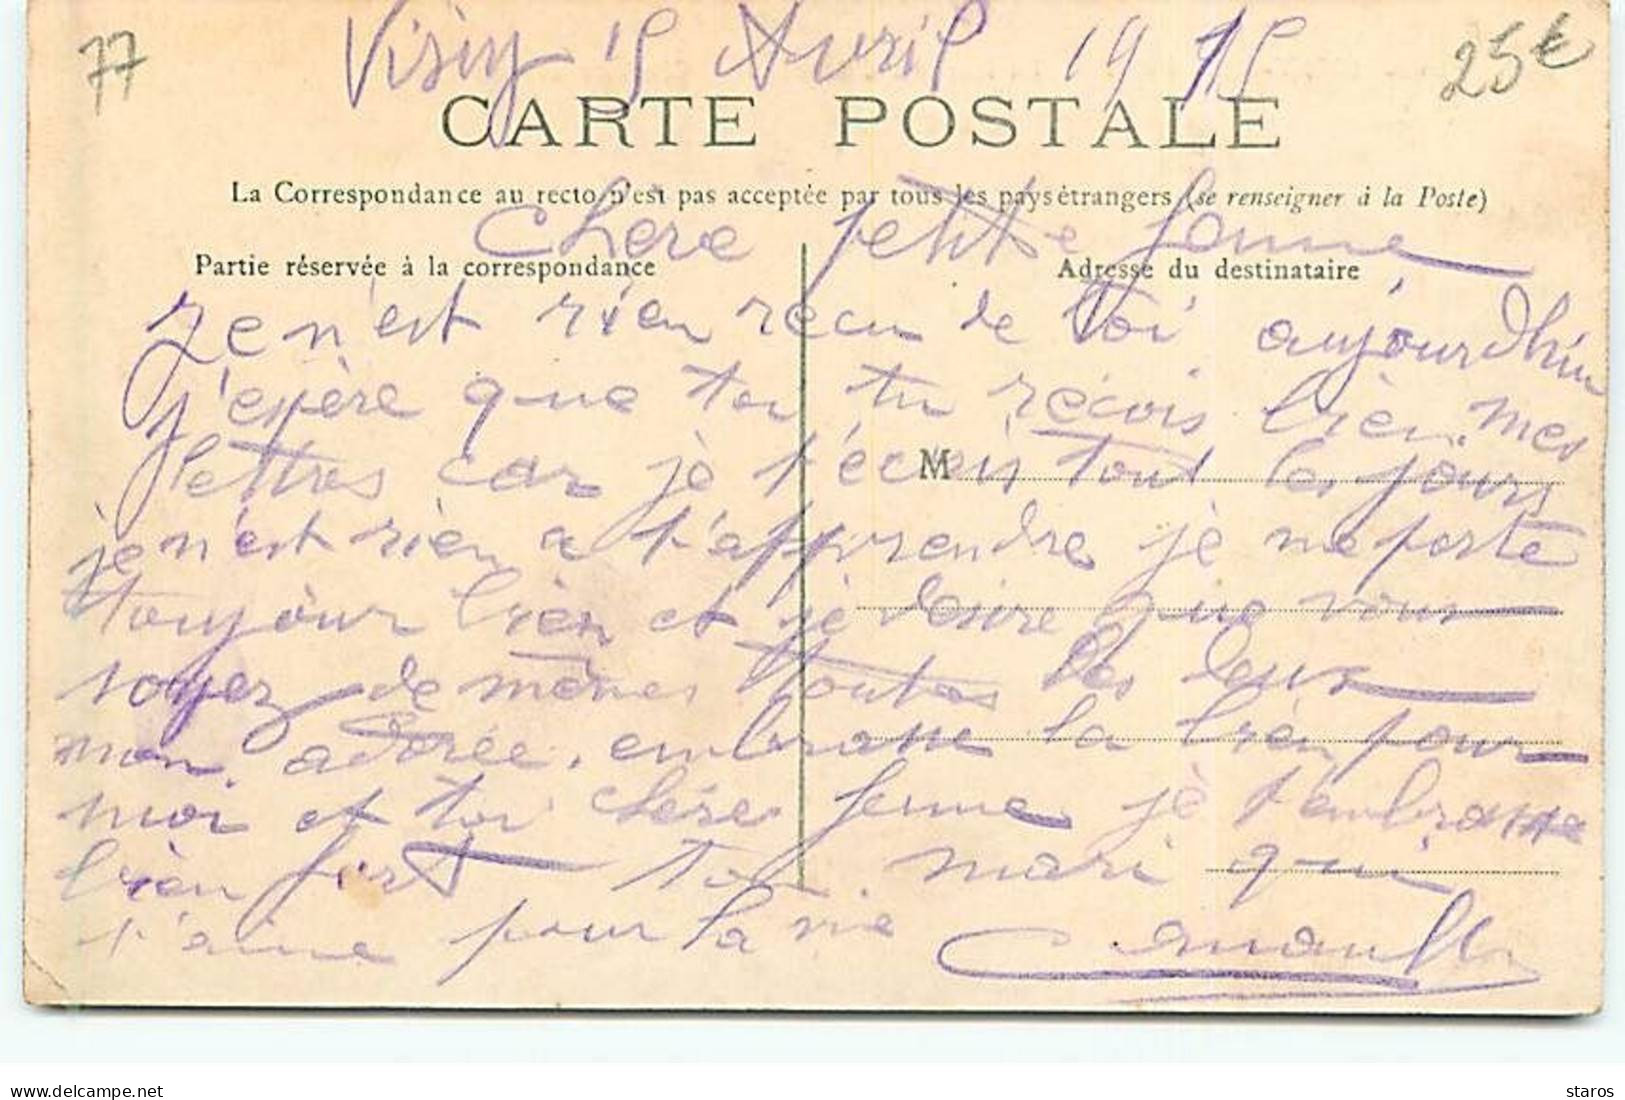 77
15 Avril 1915
25€
CARTE POSTALE
La Correspondance au recto n'est pas acceptée par tous les pays étrangers (se renseigner à la Poste)
Chere petite femme
Partie réservée à la correspondance
Adresse du destinataire
Je n'est rien recu de toi aujourdhui
j'espère que toi tu récois bien mes
lettres car jè t'écris tout les jours
M
je n'est rien a t'apprendre jè me porte
toujour bien et jè desire que vous
soyez de mêmes toutes les deux
mon adorée. embrasse la bièn pour
moi et toi chére femme jè t'embrasse
bièn fort ton mari qui
t'aime pour la vie
delcampe.net
staros